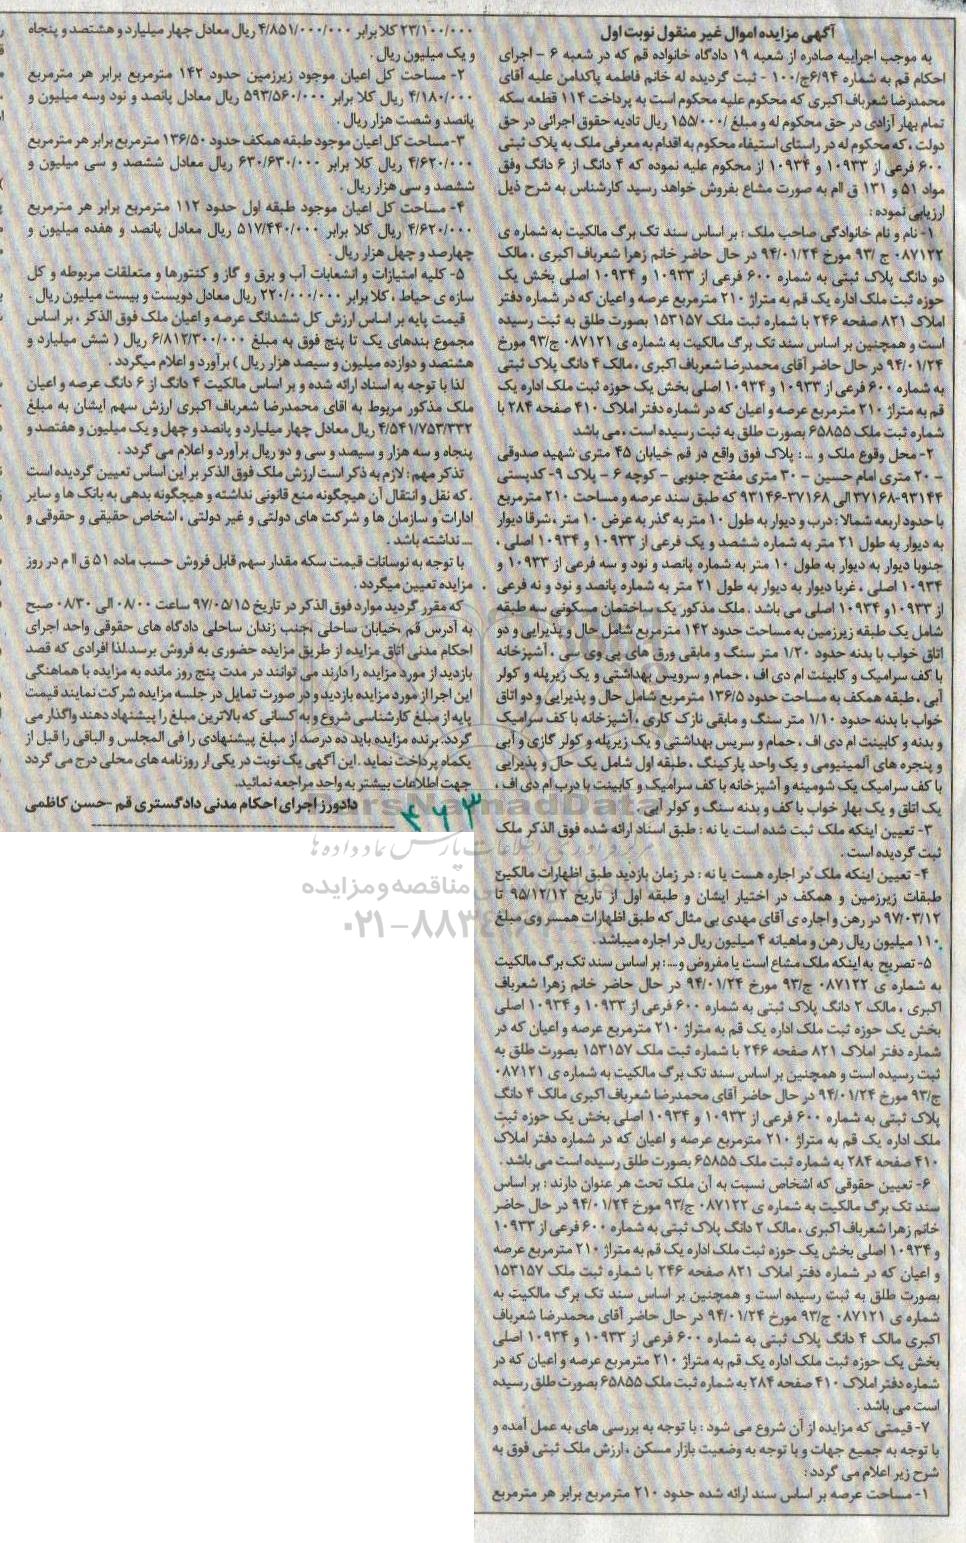 آگهی مزایده اموال غیر منقول نوبت اول
به موجب اجراییه صادره از شعبه ۱۹ دادگاه خانواده قم که در شعبه ۶ - اجرای
احکام قم به شماره ۶/۹۴ج/۱۰۰ - ثبت گردیده له خانم فاطمه پاکدامن علیه آقای
محمدرضا شعرباف اکبری که محکوم علیه محکوم است به پرداخت ۱۱۴ قطعه سکه
تمام بهار آزادی در حق محکوم له و مبلغ ۱۵۵/۰۰۰/ ریال تادیه حقوق اجرائی در حق
دولت ، که محکوم له در راستای استیفاء محکوم به اقدام به معرفی ملک به پلاک ثبتی
۶۰۰ فرعی از ۱۰۹۳۳ و ۱۰۹۳۴ از محکوم علیه نموده که ۴ دانگ از ۶ دانگ وفق
مواد ۵۱ و ۱۳۱ ق اام به صورت مشاع بفروش خواهد رسید کارشناس به شرح ذیل
ارزیابی نموده :
۱- نام و نام خانوادگی صاحب ملک : بر اساس سند تک برگ مالکیت به شماره ی
۰۸۷۱۲۲ ج /۹۳ مورخ ۹۴/۰۱/۲۴ در حال حاضر خانم زهرا شعرباف اکبری ، مالک
دو دانگ پلاک ثبتی به شماره ۶۰۰ فرعی از ۱۰۹۳۳ و ۱۰۹۳۴ اصلی بخش یک
حوزه ثبت ملک اداره یک قم به متراژ ۲۱۰ مترمربع عرصه و اعیان که در شماره دفتر
املاک ۸۲۱ صفحه ۲۴۶ با شماره ثبت ملک ۱۵۳۱۵۷ بصورت طلق به ثبت رسیده
است و همچنین بر اساس سند تک برگ مالکیت به شماره ی ۰۸۷۱۲۱ ج/۹۳ مورخ
۹۴/۰۱/۲۴ در حال حاضر آقای محمدرضا شعرباف اکبری ، مالک ۴ دانگ پلاک ثبتی
به شماره ۶۰۰ فرعی از ۱۰۹۳۳ و ۱۰۹۳۴ اصلی بخش یک حوزه ثبت ملک اداره یک
قم به متراژ ۲۱۰ مترمربع عرصه و اعیان که در شماره دفتر املاک ۴۱۰ صفحه ۲۸۴ با
شماره ثبت ملک ۶۵۸۵۵ بصورت طلق به ثبت رسیده است ، می باشد
۲- محل وقوع ملک و ... : پلاک فوق واقع در قم خیابان ۴۵ متری شهید صدوقی
- ۲۰ متری امام حسین - ۳۰ متری مفتح جنوبی - کوچه ۶ - پلاک ۹- کدپستی
۹۳۱۴۴-۳۷۱۶۸ الی ۳۷۱۶۸-۹۳۱۴۶ که طبق سند عرصه و مساحت ۲۱۰ مترمربع
با حدود اربعه شمالا : درب و دیوار به طول ۱۰ متر به گذر به عرض ۱۰ متر ، شرقا دیوار
به دیوار به طول ۲۱ متر به شماره ششصد و یک فرعی از ۱۰۹۳۳ و ۱۰۹۳۴ اصلی ،
جنوبا دیوار به دیوار به طول ۱۰ متر به شماره پانصد و نود و سه فرعی از ۱۰۹۳۳ و
۱۰۹۳۴ اصلی ، غربا دیوار به دیوار به طول ۲۱ متر به شماره پانصد و نود و نه فرعی
از ۱۰۹۳۳و ۱۰۹۳۴ اصلی می باشد . ملک مذکور یک ساختمان مسکونی سه طبقه
شامل یک طبقه زیرزمین به مساحت حدود ۱۴۲ مترمربع شامل حال و پذیرایی و دو
اتاق خواب با بدنه حدود ۱/۲۰ متر سنگ و مابقی ورق های پی وی سی ، آشپزخانه
با کف سرامیک و کابینت ام دی اف ، حمام و سرویس بهداشتی و یک زیرپله و کولر
آبی ، طبقه همکف به مساحت حدود ۱۳۶/۵ مترمربع شامل حال و پذیرایی و دو اتاق
خواب با بدنه حدود ۱/۱۰ متر سنگ و مابقی نازک کاری ، آشپزخانه با کف سرامیک
و بدنه و کابینت ام دی اف ، حمام و سریس بهداشتی و یک زیرپله و کولر گازی و آبی
و پنجره های آلمینیومی و یک واحد پارکینگ . طبقه اول شامل یک حال و پذیرایی
با کف سرامیک یک شومینه و آشپزخانه با کف سرامیک و کابینت با درب ام دی اف ،
یک اتاق و یک بهار خواب با کف و بدنه سنگ و کولر آبی
۳- تعیین اینکه ملک ثبت شده است یا نه : طبق اسناد ارائه شده فوق الذکر ملک
ثبت گردیده است .
۴- تعیین اینکه ملک در اجاره هست یا نه : در زمان بازدید طبق اظهارات مالکین
طبقات زیرزمین و همکف در اختیار ایشان و طبقه اول از تاریخ ۹۵/۱۲/۱۲ تا
۹۷/۰۳/۱۲ در رهن و اجاره ی آقای مهدی بی مثال که طبق اظهارات همسر وی مبلغ
۱۱۰ میلیون ریال رهن و ماهیانه ۴ میلیون ریال در اجاره میباشد .
۵- تصریح به اینکه ملک مشاع است یا مفروض و... : بر اساس سند تک برگ مالکیت
به شماره ی ۰۸۷۱۲۲ ج/۹۳ مورخ ۹۴/۰۱/۲۴ در حال حاضر خانم زهرا شعرباف
اکبری ، مالک ۲ دانگ پلاک ثبتی به شماره ۶۰۰ فرعی از ۱۰۹۳۳ و ۱۰۹۳۴ اصلی
بخش یک حوزه ثبت ملک اداره یک قم به متراژ ۲۱۰ مترمربع عرصه و اعیان که در
شماره دفتر املاک ۸۲۱ صفحه ۲۴۶ با شماره ثبت ملک ۱۵۳۱۵۷ بصورت طلق به
ثبت رسیده است و همچنین بر اساس سند تک برگ مالکیت به شماره ی ۰۸۷۱۲۱
ج/۹۳ مورخ ۹۴/۰۱/۲۴ در حال حاضر آقای محمدرضا شعرباف اکبری مالک ۴ دانگ
پلاک ثبتی به شماره ۶۰۰ فرعی از ۱۰۹۳۳ و ۱۰۹۳۴ اصلی بخش یک حوزه ثبت
ملک اداره یک قم به متراژ ۲۱۰ مترمربع عرصه و اعیان که در شماره دفتر املاک
۴۱۰ صفحه ۲۸۴ به شماره ثبت ملک ۶۵۸۵۵ بصورت طلق رسیده است می باشد .
۶- تعیین حقوقی که اشخاص نسبت به آن ملک تحت هر عنوان دارند : بر اساس
سند تک برگ مالکیت به شماره ی ۰۸۷۱۲۲ ج/۹۳ مورخ ۹۴/۰۱/۲۴ در حال حاضر
خانم زهرا شعرباف اکبری ، مالک ۲ دانگ پلاک ثبتی به شماره ۶۰۰ فرعی از ۱۰۹۳۳
و ۱۰۹۳۴ اصلی بخش یک حوزه ثبت ملک اداره یک قم به متراژ ۲۱۰ مترمربع عرصه
و اعیان که در شماره دفتر املاک ۸۲۱ صفحه ۲۴۶ با شماره ثبت ملک ۱۵۳۱۵۷
بصورت طلق به ثبت رسیده است و همچنین بر اساس سند تک برگ مالکیت به
شماره ی ۰۸۷۱۲۱ ج/۹۳ مورخ ۹۴/۰۱/۲۴ در حال حاضر آقای محمدرضا شعرباف
اکبری مالک ۴ دانگ پلاک ثبتی به شماره ۶۰۰ فرعی از ۱۰۹۳۳ و ۱۰۹۳۴ اصلی
بخش یک حوزه ثبت ملک اداره یک قم به متراژ ۲۱۰ مترمربع عرصه و اعیان که در
شماره دفتر املاک ۴۱۰ صفحه ۲۸۴ به شماره ثبت ملک ۶۵۸۵۵ بصورت طلق رسیده
است می باشد .
۷- قیمتی که مزایده از آن شروع می شود : با توجه به بررسی های به عمل آمده و
با توجه به جمیع جهات و با توجه به وضعیت بازار مسکن ، ارزش ملک ثبتی فوق به
شرح زیر اعلام می گردد :
۱- مساحت عرصه بر اساس سند ارائه شده حدود ۲۱۰ مترمربع برابر هر مترمربع
۲۳/۱۰۰/۰۰۰ کلا برابر ۴/۸۵۱/۰۰۰/۰۰۰ ریال معادل چهار میلیارد و هشتصد و پنجاه
و یک میلیون ریال .
۲- مساحت کل اعیان موجود زیرزمین حدود ۱۴۲ مترمربع برابر هر مترمربع
۴/۱۸۰/۰۰۰ ریال کلا برابر ۵۹۳/۵۶۰/۰۰۰ ریال معادل پانصد و نود وسه میلیون و
پانصد و شصت هزار ریال .
۳- مساحت کل اعیان موجود طبقه همکف حدود ۱۳۶/۵۰ مترمربع برابر هر مترمربع
۴/۶۲۰/۰۰۰ ریال کلا برابر ۶۳۰/۶۳۰/۰۰۰ ریال معادل ششصد و سی میلیون و
ششصد و سی هزار ریال .
۴- مساحت کل اعیان موجود طبقه اول حدود ۱۱۲ مترمربع برابر هر مترمربع
۴/۶۲۰/۰۰۰ ریال کلا برابر ۵۱۷/۴۴۰/۰۰۰ ریال معادل پانصد و هفده میلیون و
چهارصد و چهل هزار ریال .
۵- کلیه امتیازات و انشعابات آب و برق و گاز و کنتورها و متعلقات مربوطه و کل
سازه ی حیاط ، کلا برابر ۲۲۰/۰۰۰/۰۰۰ ریال معادل دویست و بیست میلیون ریال .
قیمت پایه بر اساس ارزش کل ششدانگ عرصه و اعیان ملک فوق الذکر ، بر اساس
مجموع بندهای یک تا پنج فوق به مبلغ ۶/۸۱۲/۳۰۰/۰۰۰ ریال ( شش میلیارد و
هشتصد و دوازده میلیون و سیصد هزار ریال ) برآورد و اعلام میگردد .
لذا با توجه به اسناد ارائه شده و بر اساس مالکیت ۴ دانگ از ۶ دانگ عرصه و اعیان
ملک مذکور مربوط به اقای محمدرضا شعرباف اکبری ارزش سهم ایشان به مبلغ
۴/۵۴۱/۷۵۳/۳۳۲ ریال معادل چهار میلیارد و پانصد و چهل و یک میلیون و هفتصد و
پنجاه و سه هزار و سیصد و سی و دو ریال برآورد و اعلام می گردد .
تذکر مهم : لازم به ذکر است ارزش ملک فوق الذکر بر این اساس تعیین گردیده است
که نقل و انتقال آن هیچگونه منع قانونی نداشته و هیچگونه بدهی به بانک ها و سایر
ادارات و سازمان ها و شرکت های دولتی و غیر دولتی ، اشخاص حقیقی و حقوقی و
... نداشته باشد .
با توجه به نوسانات قیمت سکه مقدار سهم قابل فروش حسب ماده ۵۱ ق اام در روز
مزایده تعیین میگردد .
که مقرر گردید موارد فوق الذکر در تاریخ ۹۷/۰۵/۱۵ ساعت ۰۸/۰۰ الی ۰۸/۳۰ صبح
به آدرس قم ،خیابان ساحلی ،جنب زندان ساحلی دادگاه های حقوقی واحد اجرای
احکام مدنی اتاق مزایده از طریق مزایده حضوری به فروش برسد.لذا افرادی که قصد
بازدید از مورد مزایده را دارند می توانند در مدت پنج روز مانده به مزایده با هماهنگی
این اجرا از مورد مزایده بازدید و در صورت تمایل در جلسه مزایده شرکت نمایند قیمت
پایه از مبلغ کارشناسی شروع و به کسانی که بالاترین مبلغ را پیشنهاد دهند واگذار می
گردد. برنده مزایده باید ده درصد از مبلغ پیشنهادی را فی المجلس و الباقی را قبل از
یکماه پرداخت نماید .این آگهی یک نوبت در یکی از روزنامه های محلی درج می گردد
جهت اطلاعات بیشتر به واحد مراجعه نمائید.
دادورز اجرای احکام مدنی دادگستری قم -حسن کاظمی
۴۶۳
ParsNamadData
مرکز فرآوری اطلاعات پارس نماد داده ها
مناقصه و مزایده